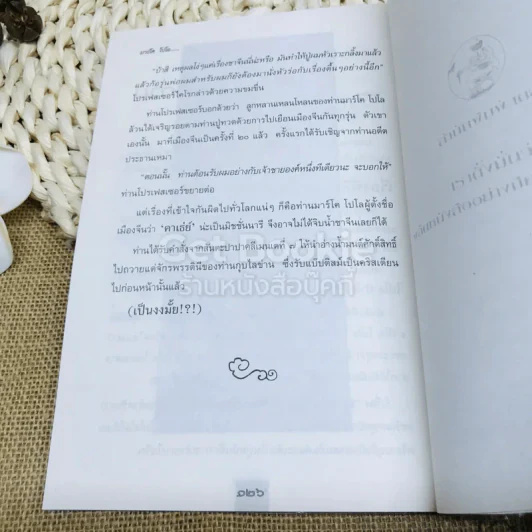 "ป้าสิ เหตุผลโง่ๆแค่เรื่องชาจีนนี่น่ะหรือ มันทำให้ปู่ผมหัวเราะกลิ้งมาแล้ว
แล้วก็รุ่นพ่อผมสำหรับผมก็ยังต้องมานั่งหัวร่อกับเรื่องตื้นๆอย่างนี้อีก"
โปรเฟสเซอร์ไคโรกล่าวด้วยความขมขื่น
ท่านโปรเฟสเซอร์บอกด้วยว่า ลูกหลานเหลนโหลนของท่านมาร์โค โปโล
ล้วนได้เจริญรอยตามท่านปู่ทวดด้วยการไปเยือนเมืองจีนกันทุกรุ่น ตัวเขา
เองนั้น มาที่เมืองจีนเป็นครั้งที่ ๒๐ แล้ว ครั้งแรกได้รับเชิญจากท่านอดีต
ประธานเหมา
"ตอนนั้น ท่านต้อนรับผมอย่างกับเจ้าชายองค์หนึ่งทีเดียวนะ จะบอกให้"
ท่านโปรเฟสเซอร์ขยายต่อ
แต่เรื่องที่เข้าใจกันผิดไปทั่วโลกแน่ๆ ก็คือท่านมาร์โค โปโลผู้ตั้งชื่อ
เมืองจีนว่า 'คาเธ่ย์' น่ะเป็นมิชชั่นนารี จึงอาจไม่ได้จิบน้ำชาจีนเลยก็ได้
ท่านได้รับคำสั่งจากสันตะปาปาคลีเมนแตที่ ๗ ให้นำอ่างน้ำมนต์ศักดิ์สิทธิ์
ไปถวายแด่จักรพรรดินีของท่านกุบไลข่าน ซึ่งรับแบ๊บติสม์เป็นคริสเตียน
ไปก่อนหน้านั้นแล้ว
(เป็นงงมั้ย!?!)
Get Bookie
ร้านหนังสือบุ๊คกี้
๑๒๖